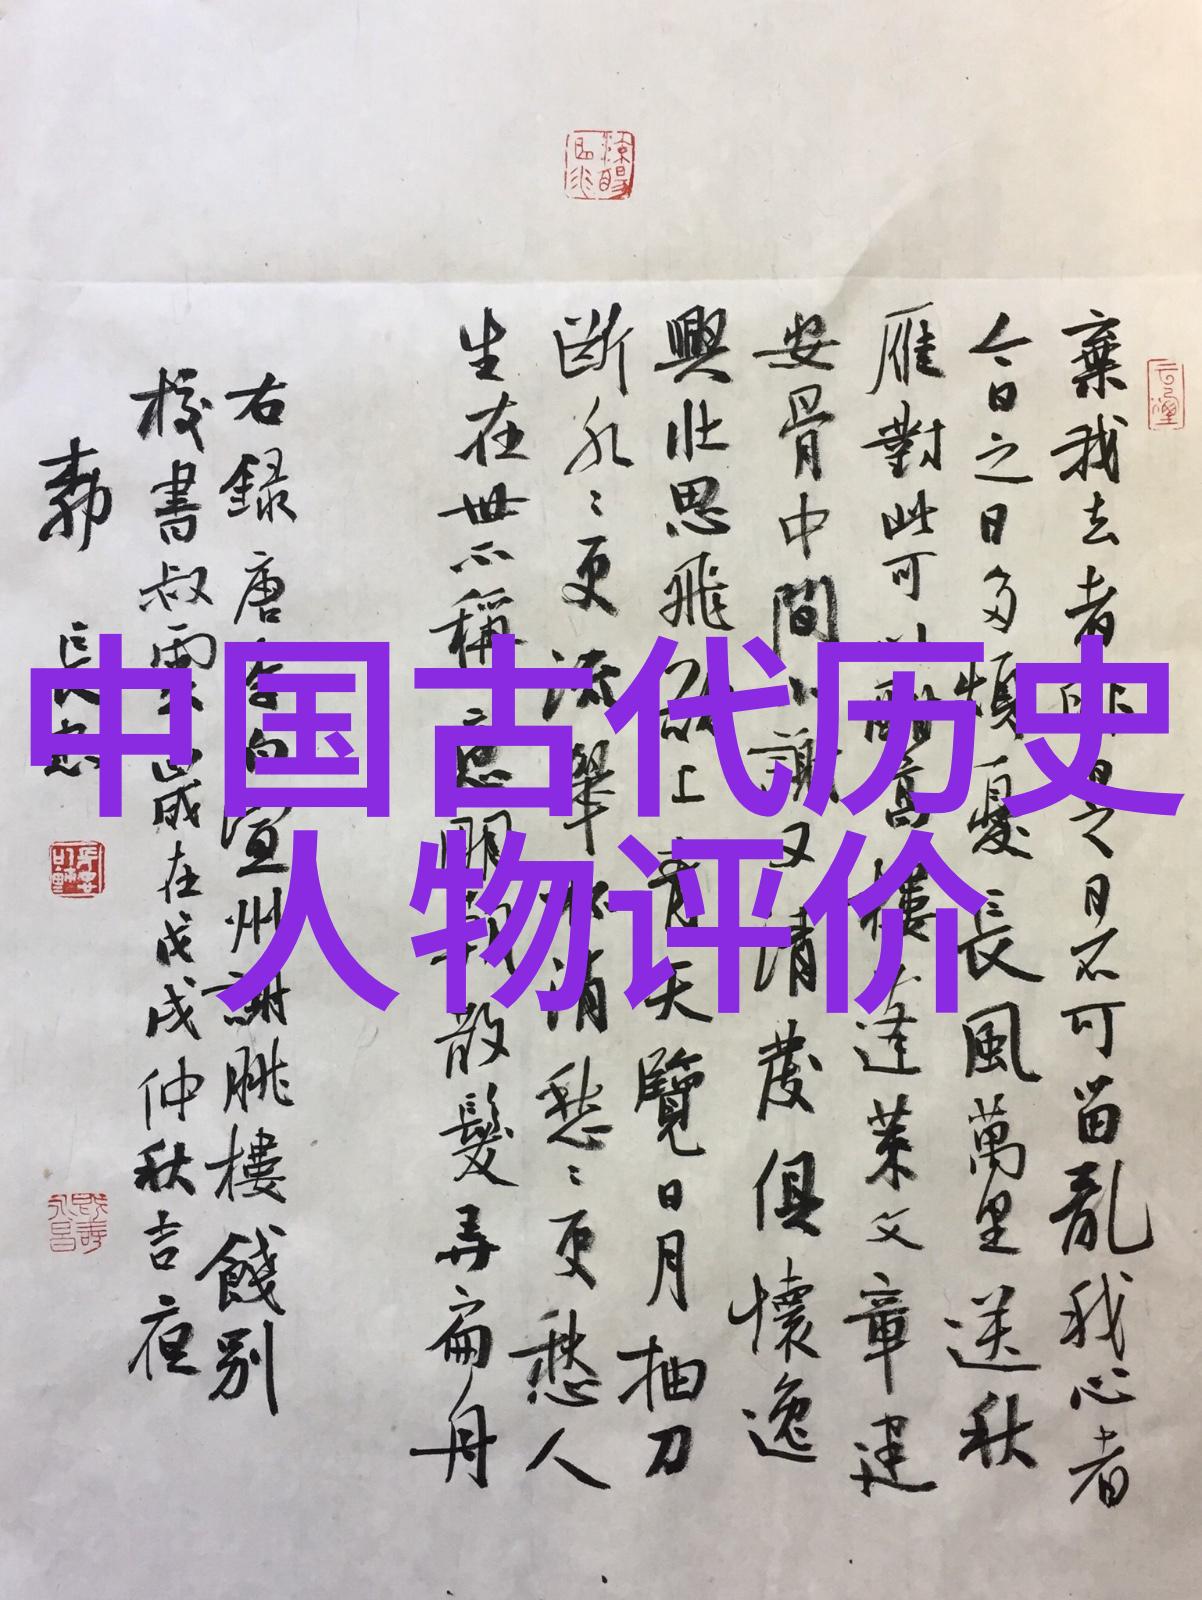 中国古代历史
人物评价
棄我去者昨日之日不可留亂我心者
今日之日多煩憂長風萬里送秋
雁對此可以酣樓蓬萊文章建
安骨中間小謝又清發俱懷逸
興壯思飛欲上青天覽日月抽刀
斷水〻更流舉杯消愁〻更愁人
生在世不稱意明朝散髮弄扁舟
右録唐李白宣州謝朓樓餞別
校書叔雲歲在戊戌仲秋吉夜